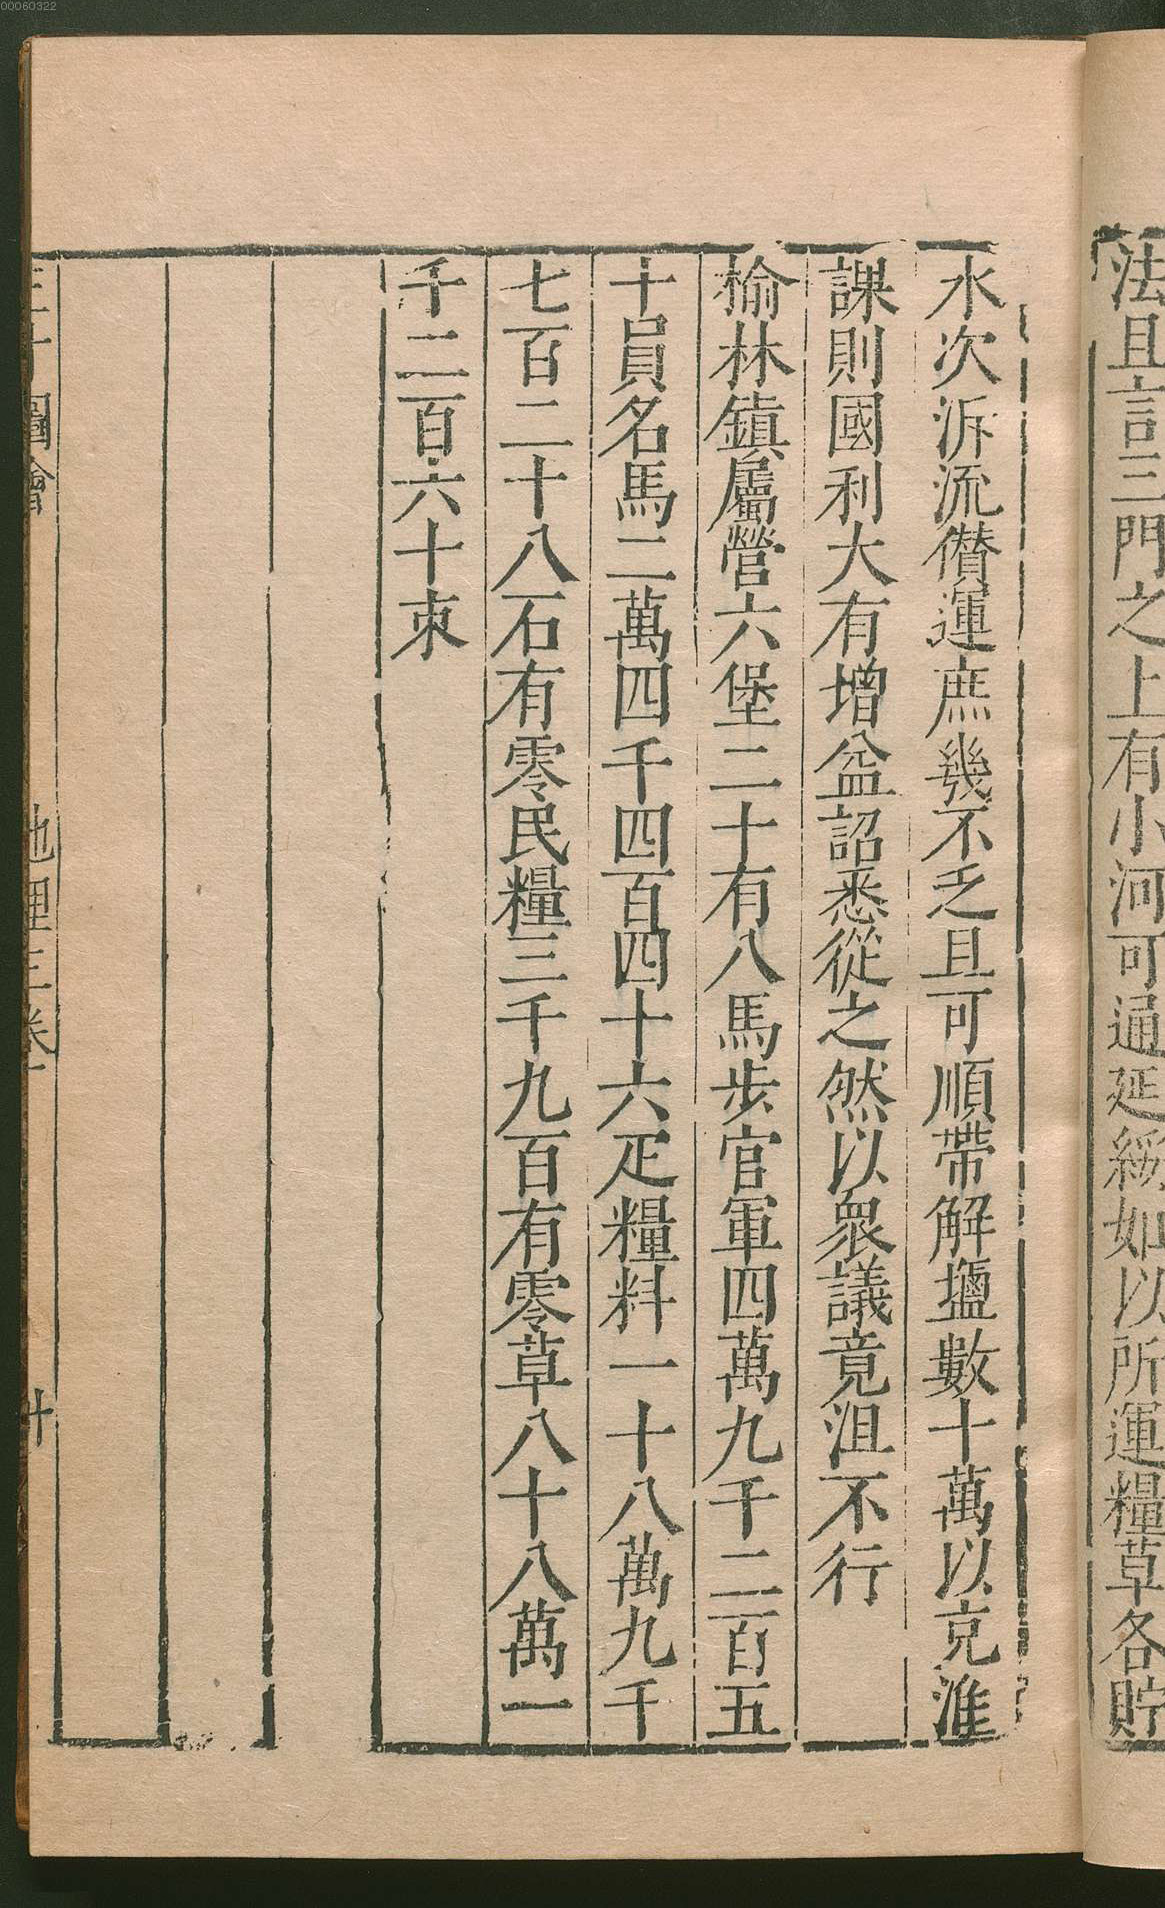 00060322
法且言三門之上有小河可通延綏如以所運糧草各貯
水次泝流儧運庶幾不乏且可順帶解塩數十萬以克淮
課則國利大有增益詔悉從之然以衆議竟沮不行
榆林鎮屬營六堡二十有八馬步官軍四萬九千二百五
十員名馬二萬四千四百四十六疋糧料一十八萬九千
七百二十八石有零民糧三千九百有零草八十八萬一
千二百六十束
三才圖會 地理三卷 廾